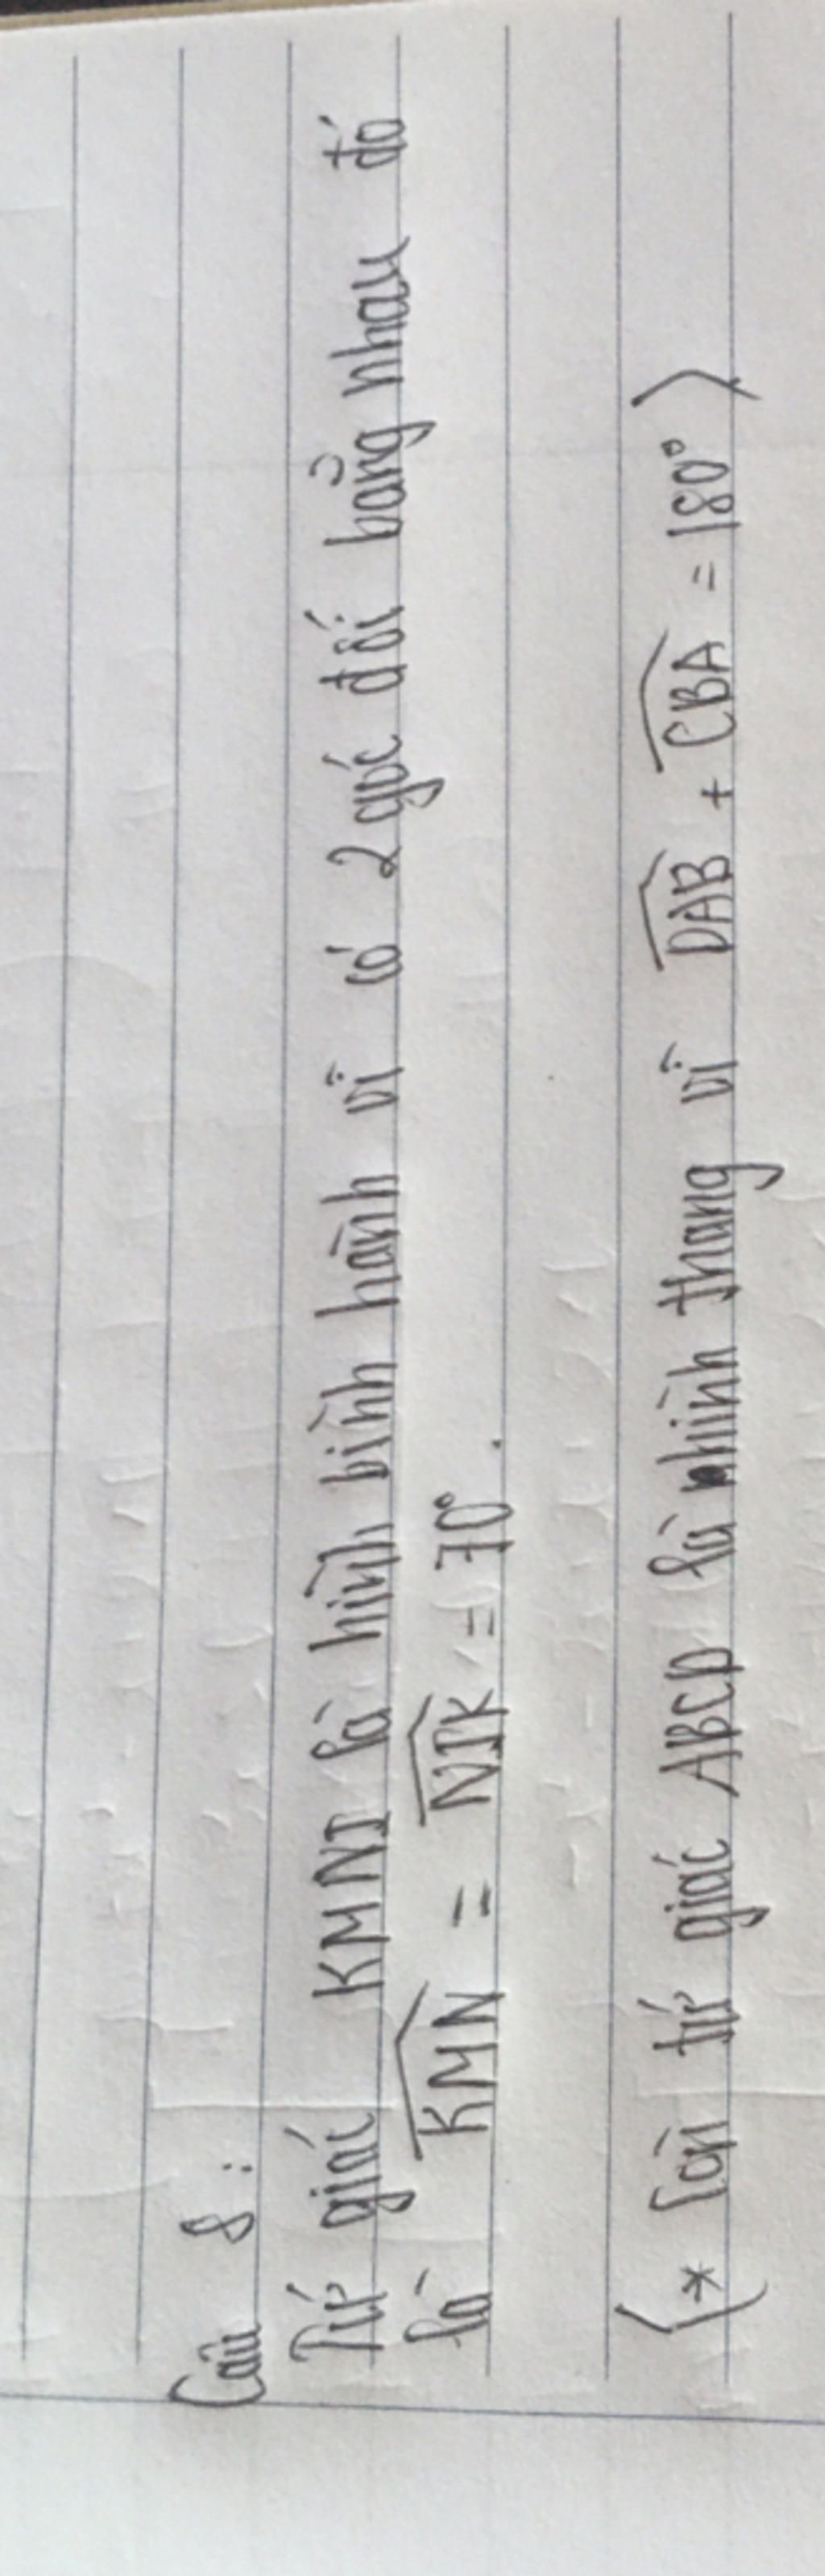 Câu 8:
Tứ giác KMNI là hình bình hành vì có 2 góc đối bằng nhau đó
là KMN = NIK = 70°.
(* Còn tứ giác ABCD là hình thang vì DAB + CBA = 180°)